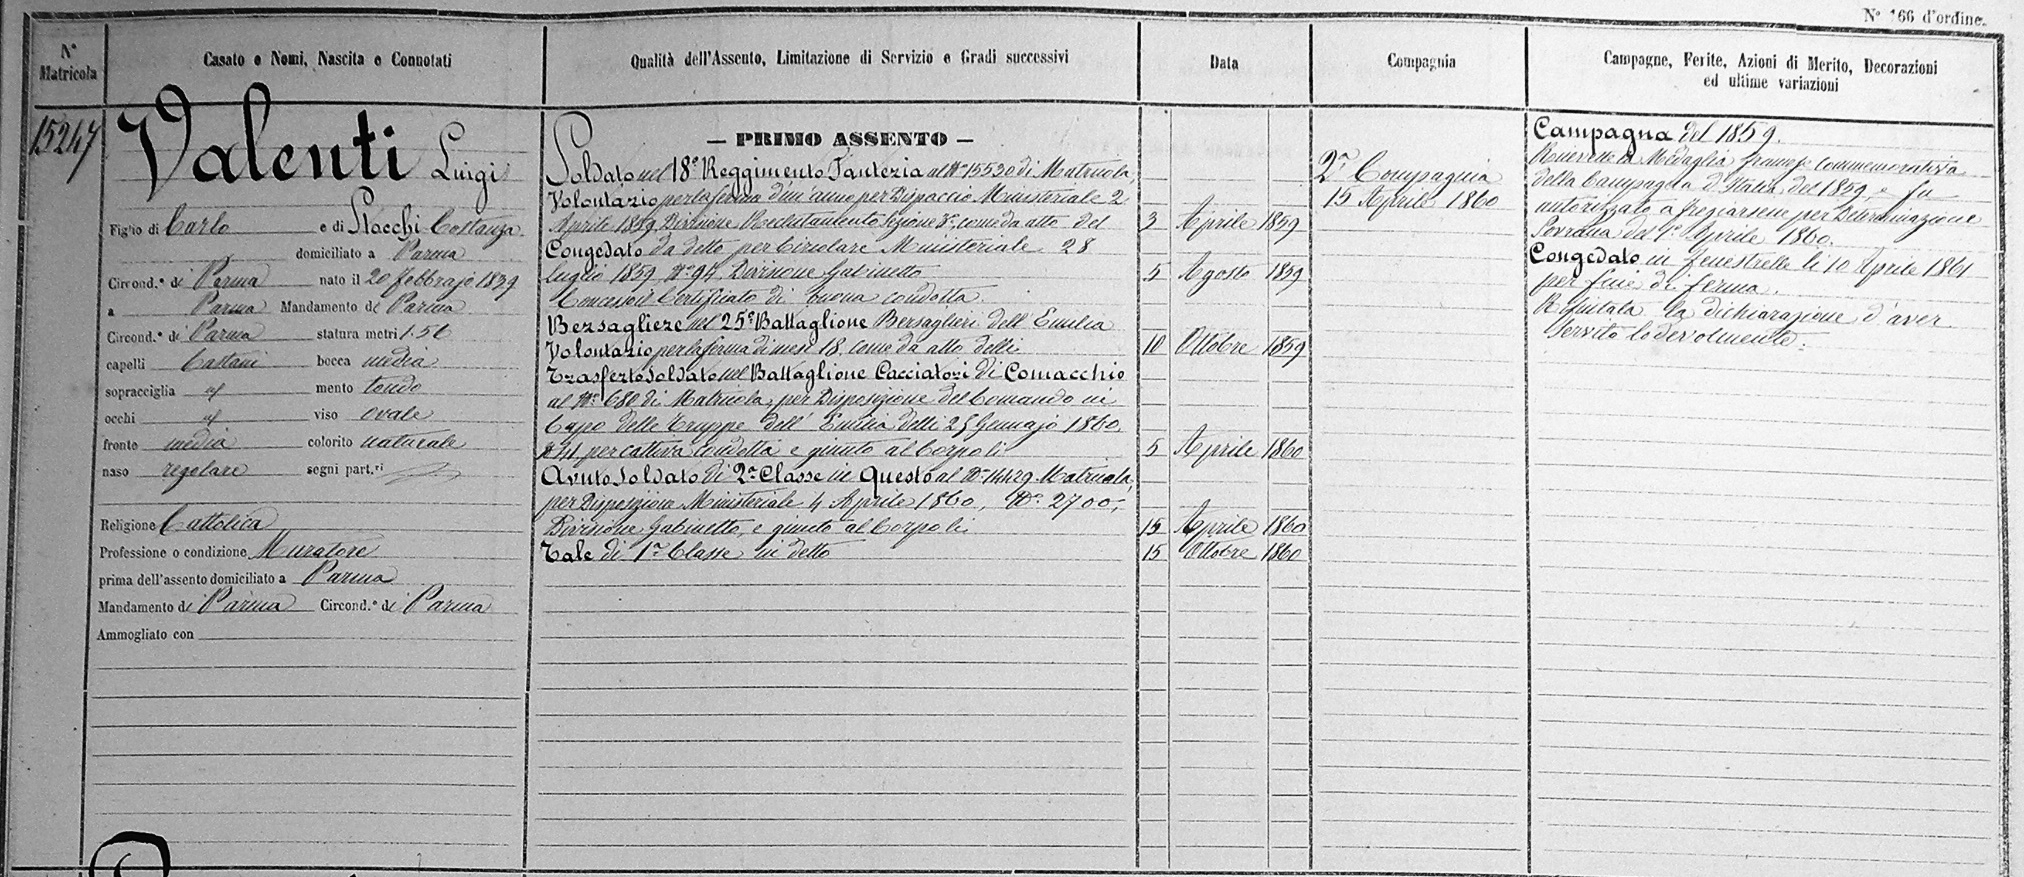 N° 166 d'ordine.
N° Matricola
Casato e Nomi, Nascita e Connotati
Qualità dell'Assento, Limitazione di Servizio e Gradi successivi
Data
Compagnia
Campagne, Ferite, Azioni di Merito, Decorazioni
ed ultime variazioni
15247
Valenti Luigi
Figlio di Carlo e di Stocchi Costanza
domiciliato a Parma
Circond.° di Parma nato il 20 febbrajo 1839
a Parma Mandamento di Parma
Circond.° di Parma statura metri 1.56
capelli Castani bocca media
sopracciglia id mento tondo
occhi id viso ovale
fronte media colorito naturale
naso regolare segni part.ri
Religione Cattolica
Professione o condizione Muratore
prima dell'assento domiciliato a Parma
Mandamento di Parma Circond.° di Parma
Ammogliato con
— PRIMO ASSENTO —
Soldato nel 18° Reggimento Fanteria al N° 15520 di Matricola,
Volontario per la ferma d'un anno per Dispaccio Ministeriale 2
Aprile 1859 Divisione Reclutamento Sezione come da atto del 3 Aprile 1859
Congedato da detto per Circolare Ministeriale 28
Luglio 1859 N° 94 Divisione Gabinetto 5 Agosto 1859
Concessoil Certificato di buona condotta.
Bersagliere nel 25° Battaglione Bersaglieri dell'Emilia
Volontario per la ferma di mesi 18, come da atto delli 10 Ottobre 1859
Trasferto soldato nel Battaglione Cacciatori di Comacchio
al N° 680 di Matricola, per Disposizione del Comando in
Capo delle Truppe dell'Emilia delli 25 Gennajo 1860,
per cattiva condotta e giunto al Corpo li 5 Aprile 1860
Avuto Soldato di 2a Classe in Questo al N° 14429 Matricola,
per Disposizione Ministeriale 4 Aprile 1860, N° 2700,
Divisione Gabinetto, e giunto al Corpo li 15 Aprile 1860
Tale di 1a Classe in detto 15 Ottobre 1860
2a Compagnia
15 Aprile 1860
Campagna del 1859.
Ricevette la Medaglia francese commemorativa
della Campagna d'Italia del 1859, e fu
autorizzato a fregiarsene per Determinazione
Sovrana del 1° Aprile 1860.
Congedato in Fenestrelle li 10 Aprile 1861
per fine di ferma.
Rifiutata la dichiarazione d'aver
servito lodevolmente.